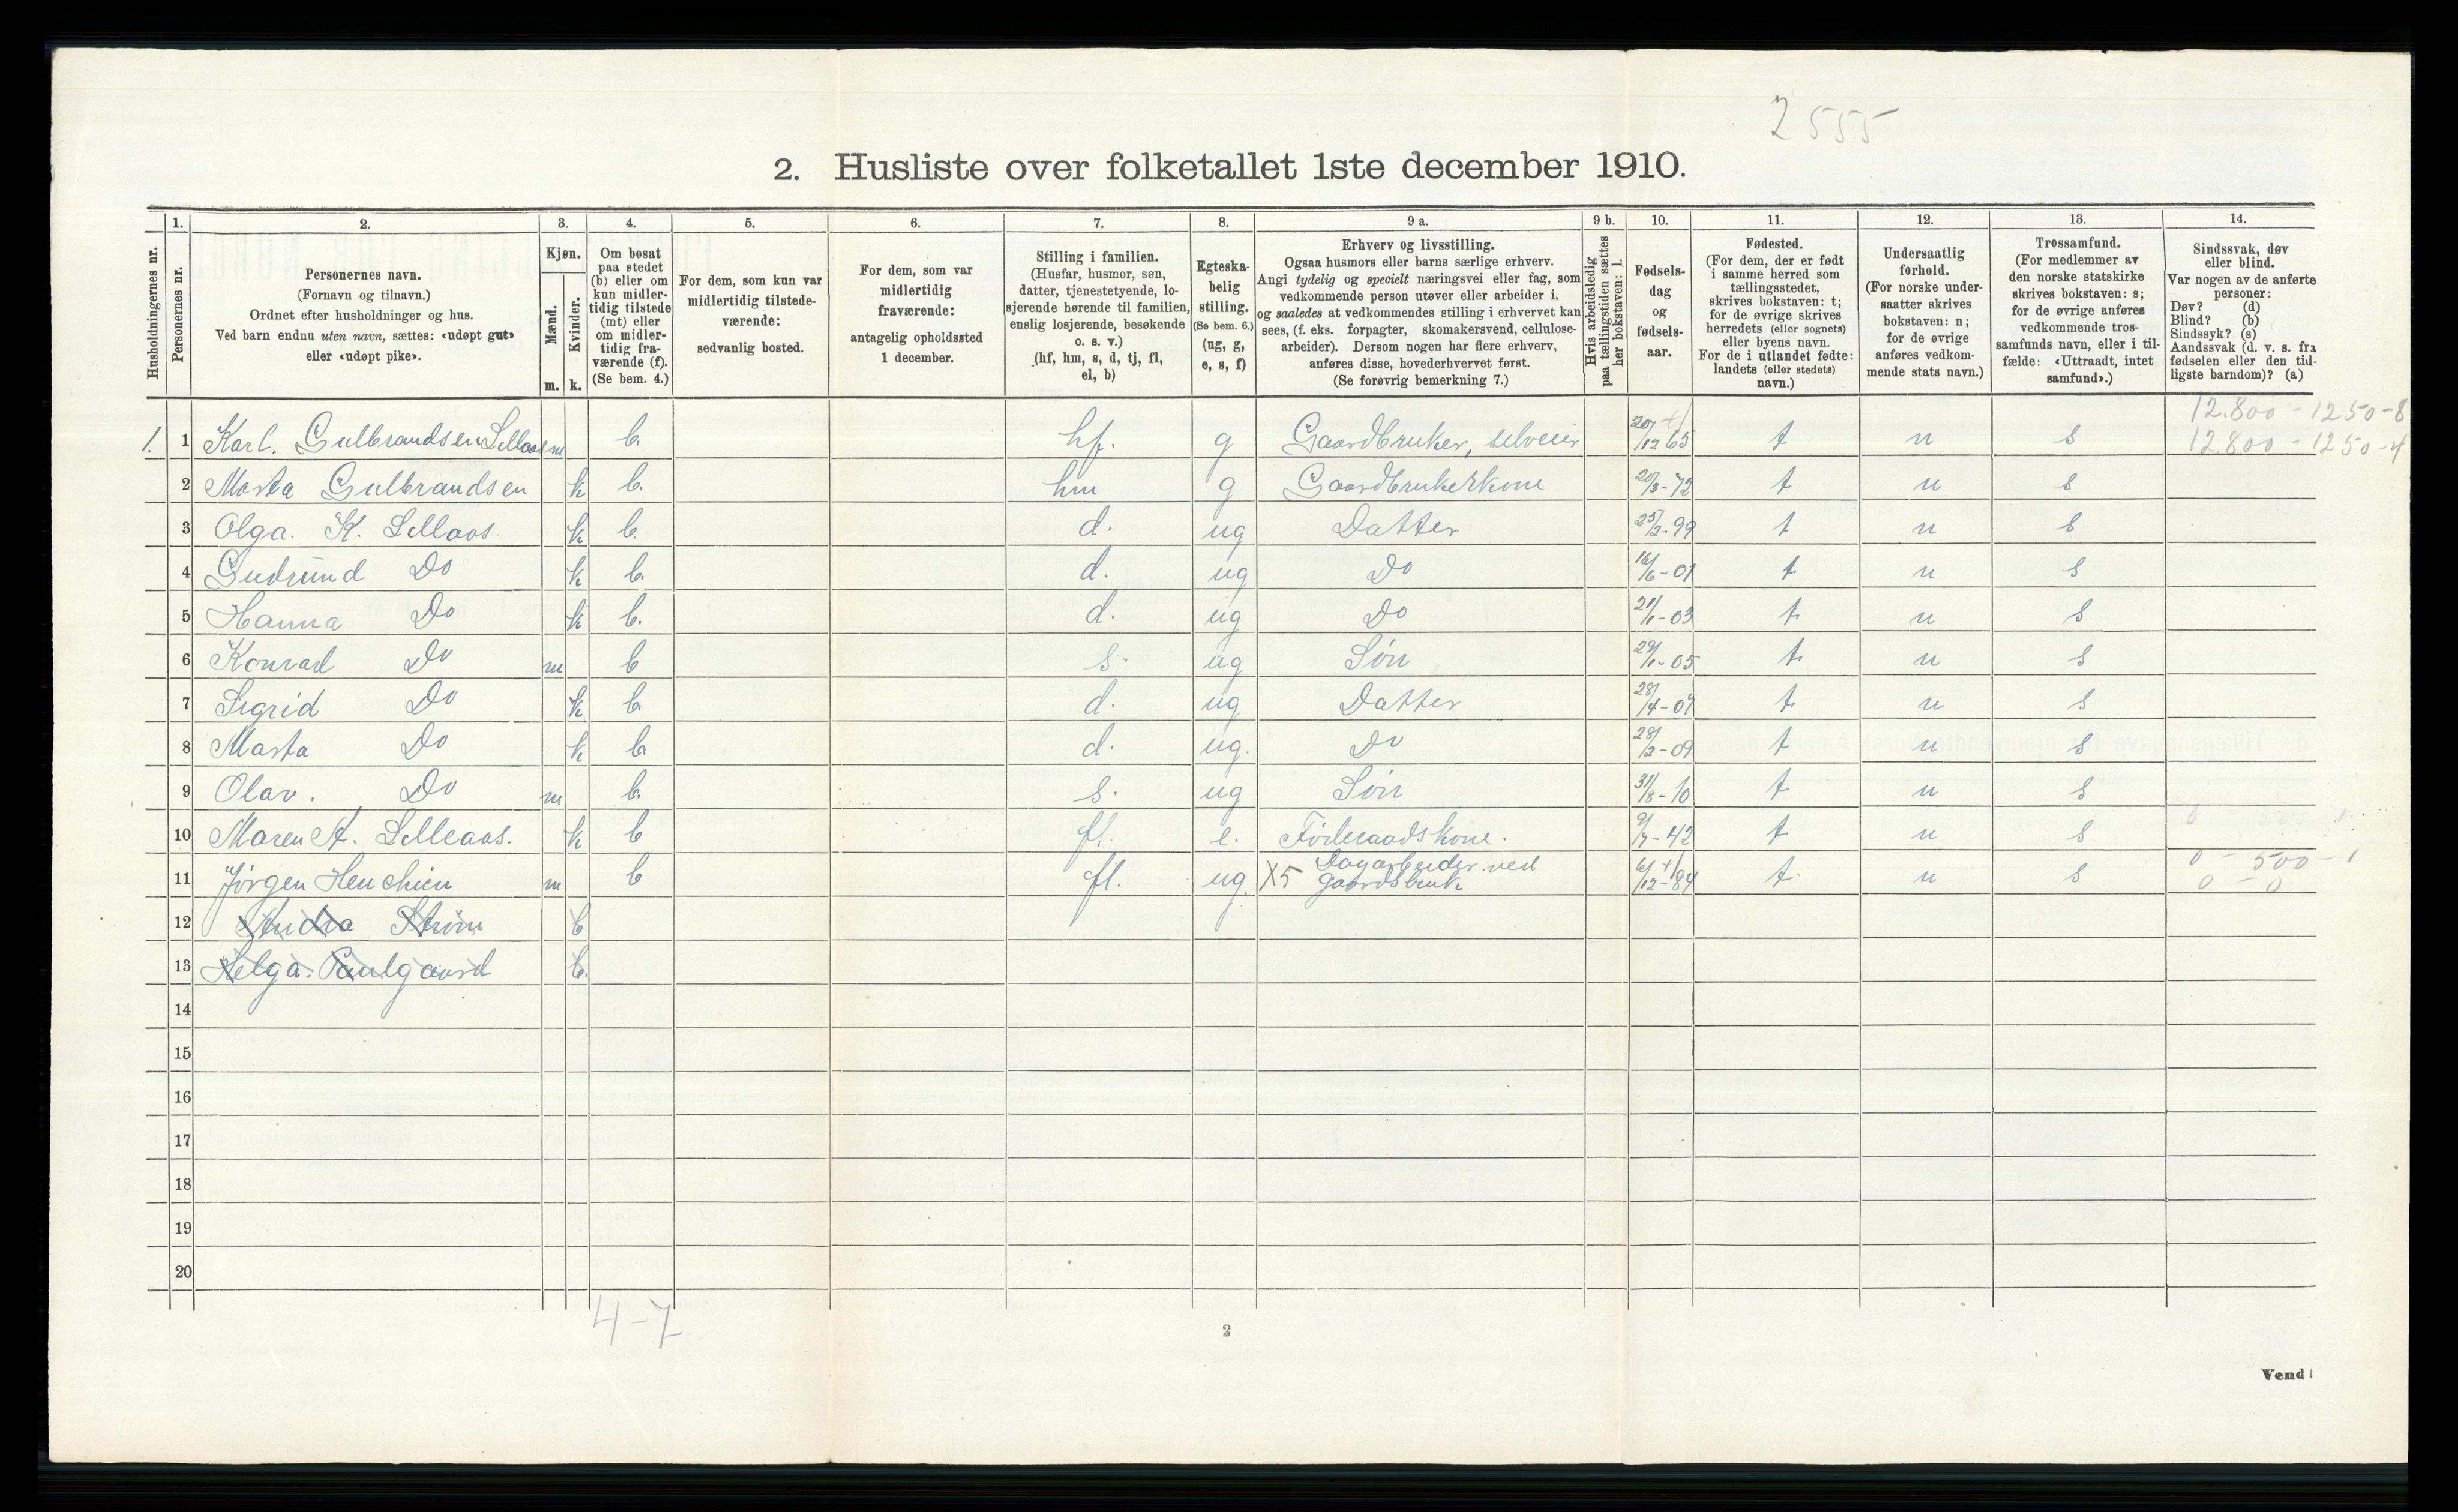 2555
2. Husliste over folketallet 1ste december 1910.
Husholdningernes nr.
1.
Personernes nr.
2.
Personernes navn.
(Fornavn og tilnavn.)
Ordnet efter husholdninger og hus.
Ved barn endnu uten navn, sættes: «udøpt gut»
eller «udøpt pike».
3.
Kjøn.
Mænd.
Kvinder.
m. k.
4.
Om bosat
paa stedet
(b) eller om
kun midler-
tidig tilstede
(mt) eller
om midler-
tidig fra-
værende (f).
(Se bem. 4.)
5.
For dem, som kun var
midlertidig tilstede-
værende:
sedvanlig bosted.
6.
For dem, som var
midlertidig
fraværende:
antagelig opholdssted
1 december.
7.
Stilling i familien.
(Husfar, husmor, søn,
datter, tjenestetyende, lo-
sjerende hørende til familien,
enslig losjerende, besøkende
o. s. v.)
(hf, hm, s, d, tj, fl,
el, b)
8.
Egteska-
belig
stilling.
(Se bem. 6.)
(ug, g,
e, s, f)
9 a.
Erhverv og livsstilling.
Ogsaa husmors eller barns særlige erhverv.
Angi tydelig og specielt næringsvei eller fag, som
vedkommende person utøver eller arbeider i,
og saaledes at vedkommendes stilling i erhvervet kan
sees, (f. eks. forpagter, skomakersvend, cellulose-
arbeider). Dersom nogen har flere erhverv,
anføres disse, hovederhvervet først.
(Se forøvrig bemerkning 7.)
9 b.
Hvis arbeidsledig
paa tællingstiden sættes
her bokstaven: l.
10.
Fødsels-
dag
og
fødsels-
aar.
11.
Fødested.
(For dem, der er født
i samme herred som
tællingsstedet,
skrives bokstaven: t;
for de øvrige skrives
herredets (eller sognets)
eller byens navn.
For de i utlandet fødte:
landets (eller stedets)
navn.)
12.
Undersaatlig
forhold.
(For norske under-
saatter skrives
bokstaven: n;
for de øvrige
anføres vedkom-
mende stats navn.)
13.
Trossamfund.
(For medlemmer av
den norske statskirke
skrives bokstaven: s;
for de øvrige anføres
vedkommende tros-
samfunds navn, eller i til-
fælde: «Uttraadt, intet
samfund».)
14.
Sindssvak, døv
eller blind.
Var nogen av de anførte
personer:
Døv? (d)
Blind? (b)
Sindssyk? (s)
Aandssvak (d. v. s. fra
fødselen eller den tid-
ligste barndom)? (a)
12.800 - 1250 - 8
1. 1 Karl. Gulbrandsen Lilleaas m b. hf. g Gaardbruker, selveier 20/12 65 t n s 12.800 - 1250 - 4
2 Marta Gulbrandsen k b. hm g Gaardbrukerkone 20/3-72 t n s
3 Olga. K. Lilleaas k b. d. ug Datter 25/2-99 t n s
4 Gudrund Do k b. d. ug Do 16/6-01 t n s
5 Hanna Do k b. d. ug Do 21/1-03 t n s
6 Konrad Do m b s. ug Søn 29/1-05 t n s
7 Sigrid Do k b. d. ug Datter 28/4-07 t n s
8 Marta Do k b d. ug. Do 28/2-09 t n s
9 Olav. Do m b. s. ug Søn 31/8-10 t n s
10 Maren A. Lilleaas. k b fl. e. Føderaadskone. 9/7-42 t n s 0 - 500 - 1
11 Jørgen Henchien m b fl. ug. X5 Dagarbeider ved gaardsbruk 6/12-84 t n s 0 - 500 - 1
0 - 0
12 Andrea Strøm b
13 Helga. Paulgaard b.
14
15
16
17
18
19
20
4-7
2
Vend!